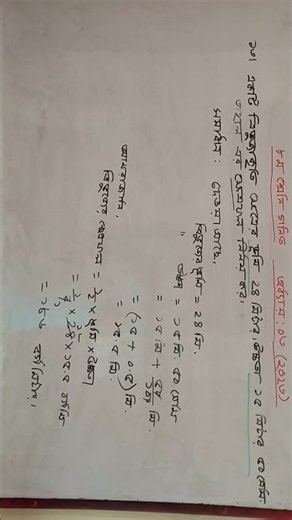 ৮ম শ্রেণি গণিত অধ্যায়: ০৩ (২০২৬)
১০। একটি ত্রিভুজাকৃতি ক্ষেত্রের ভূমি ২৪ মিটার, উচ্চতা ১৫ মিটার ৫০ সে.মি.
হলে এর ক্ষেত্রফল নির্ণয় কর।
সমাধান: দেওয়া আছে,
ত্রিভুজের ভূমি = ২৪ মি.
" উচ্চতা = ১৫ মি ৫০ সে.মি
= ১৫ মি + ৫০/১০০ মি.
= (১৫ + ০.৫) মি.
= ১৫.৫ মি.
আমরা জানি,
ত্রিভুজের ক্ষেত্রফল
= ১/২ × ভূমি × উচ্চতা
= ১/২ × ২৪ × ১৫.৫ বর্গমি
= ১৮৬ বর্গ মিটার।